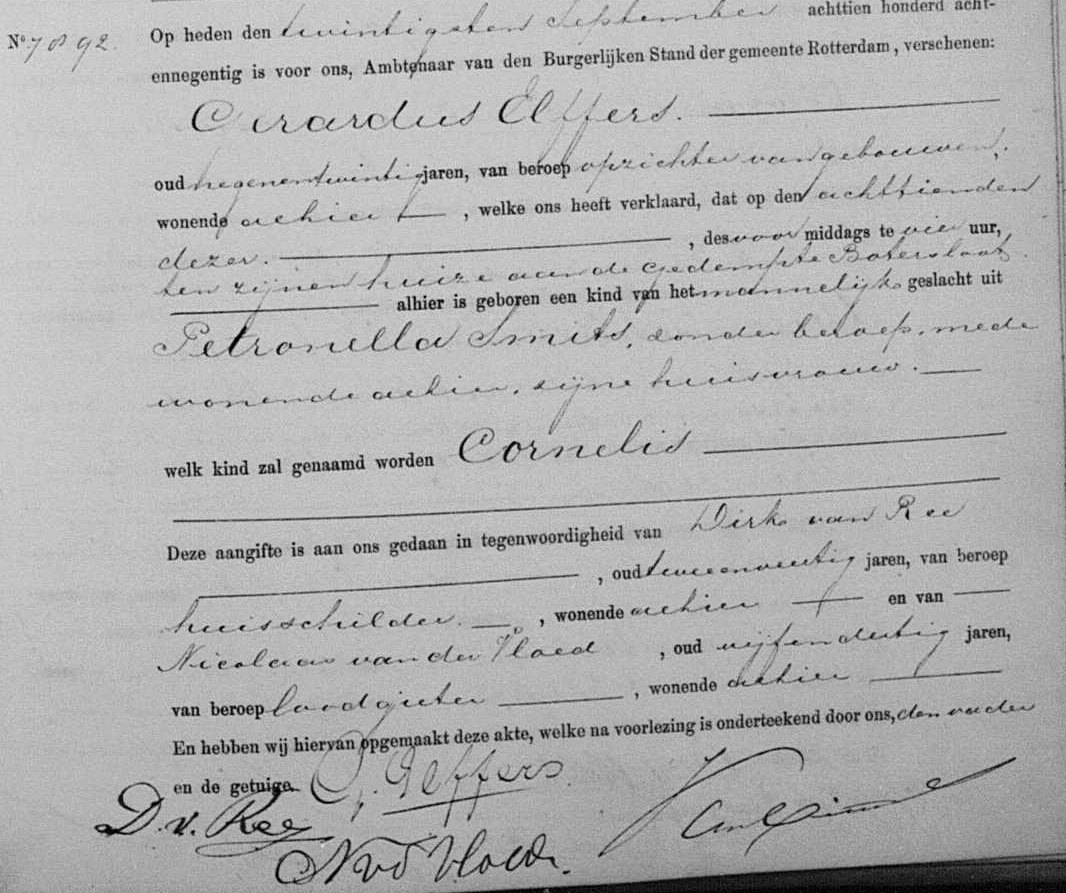 Op heden den twintigsten September achttien honderd acht-
N° 7892. ennegentig is voor ons, Ambtenaar van den Burgerlijken Stand der gemeente Rotterdam, verschenen:
Girardus Elffers.
oud negenentwintig jaren, van beroep opzichter van gebouwen,
wonende alhier, welke ons heeft verklaard, dat op den achttienden
dezer. , des voormiddags te vier uur,
ten zijnen huize aan de Gedempte Botersloot
alhier is geboren een kind van het mannelijk geslacht uit
Petronella Smits, zonder beroep, mede
wonende alhier, zijne huisvrouw.
welk kind zal genaamd worden Cornelis
Deze aangifte is aan ons gedaan in tegenwoordigheid van Dirk van Ree
, oud tweeenveertig jaren, van beroep
huisschilder. , wonende alhier en van
Nicolaas van der Vloed , oud vijfendertig jaren,
van beroep loodgieter , wonende alhier
En hebben wij hiervan opgemaakt deze akte, welke na voorlezing is onderteekend door ons, den vader
en de getuige. G. Elffers
D. v. Ree
N v d Vloed.